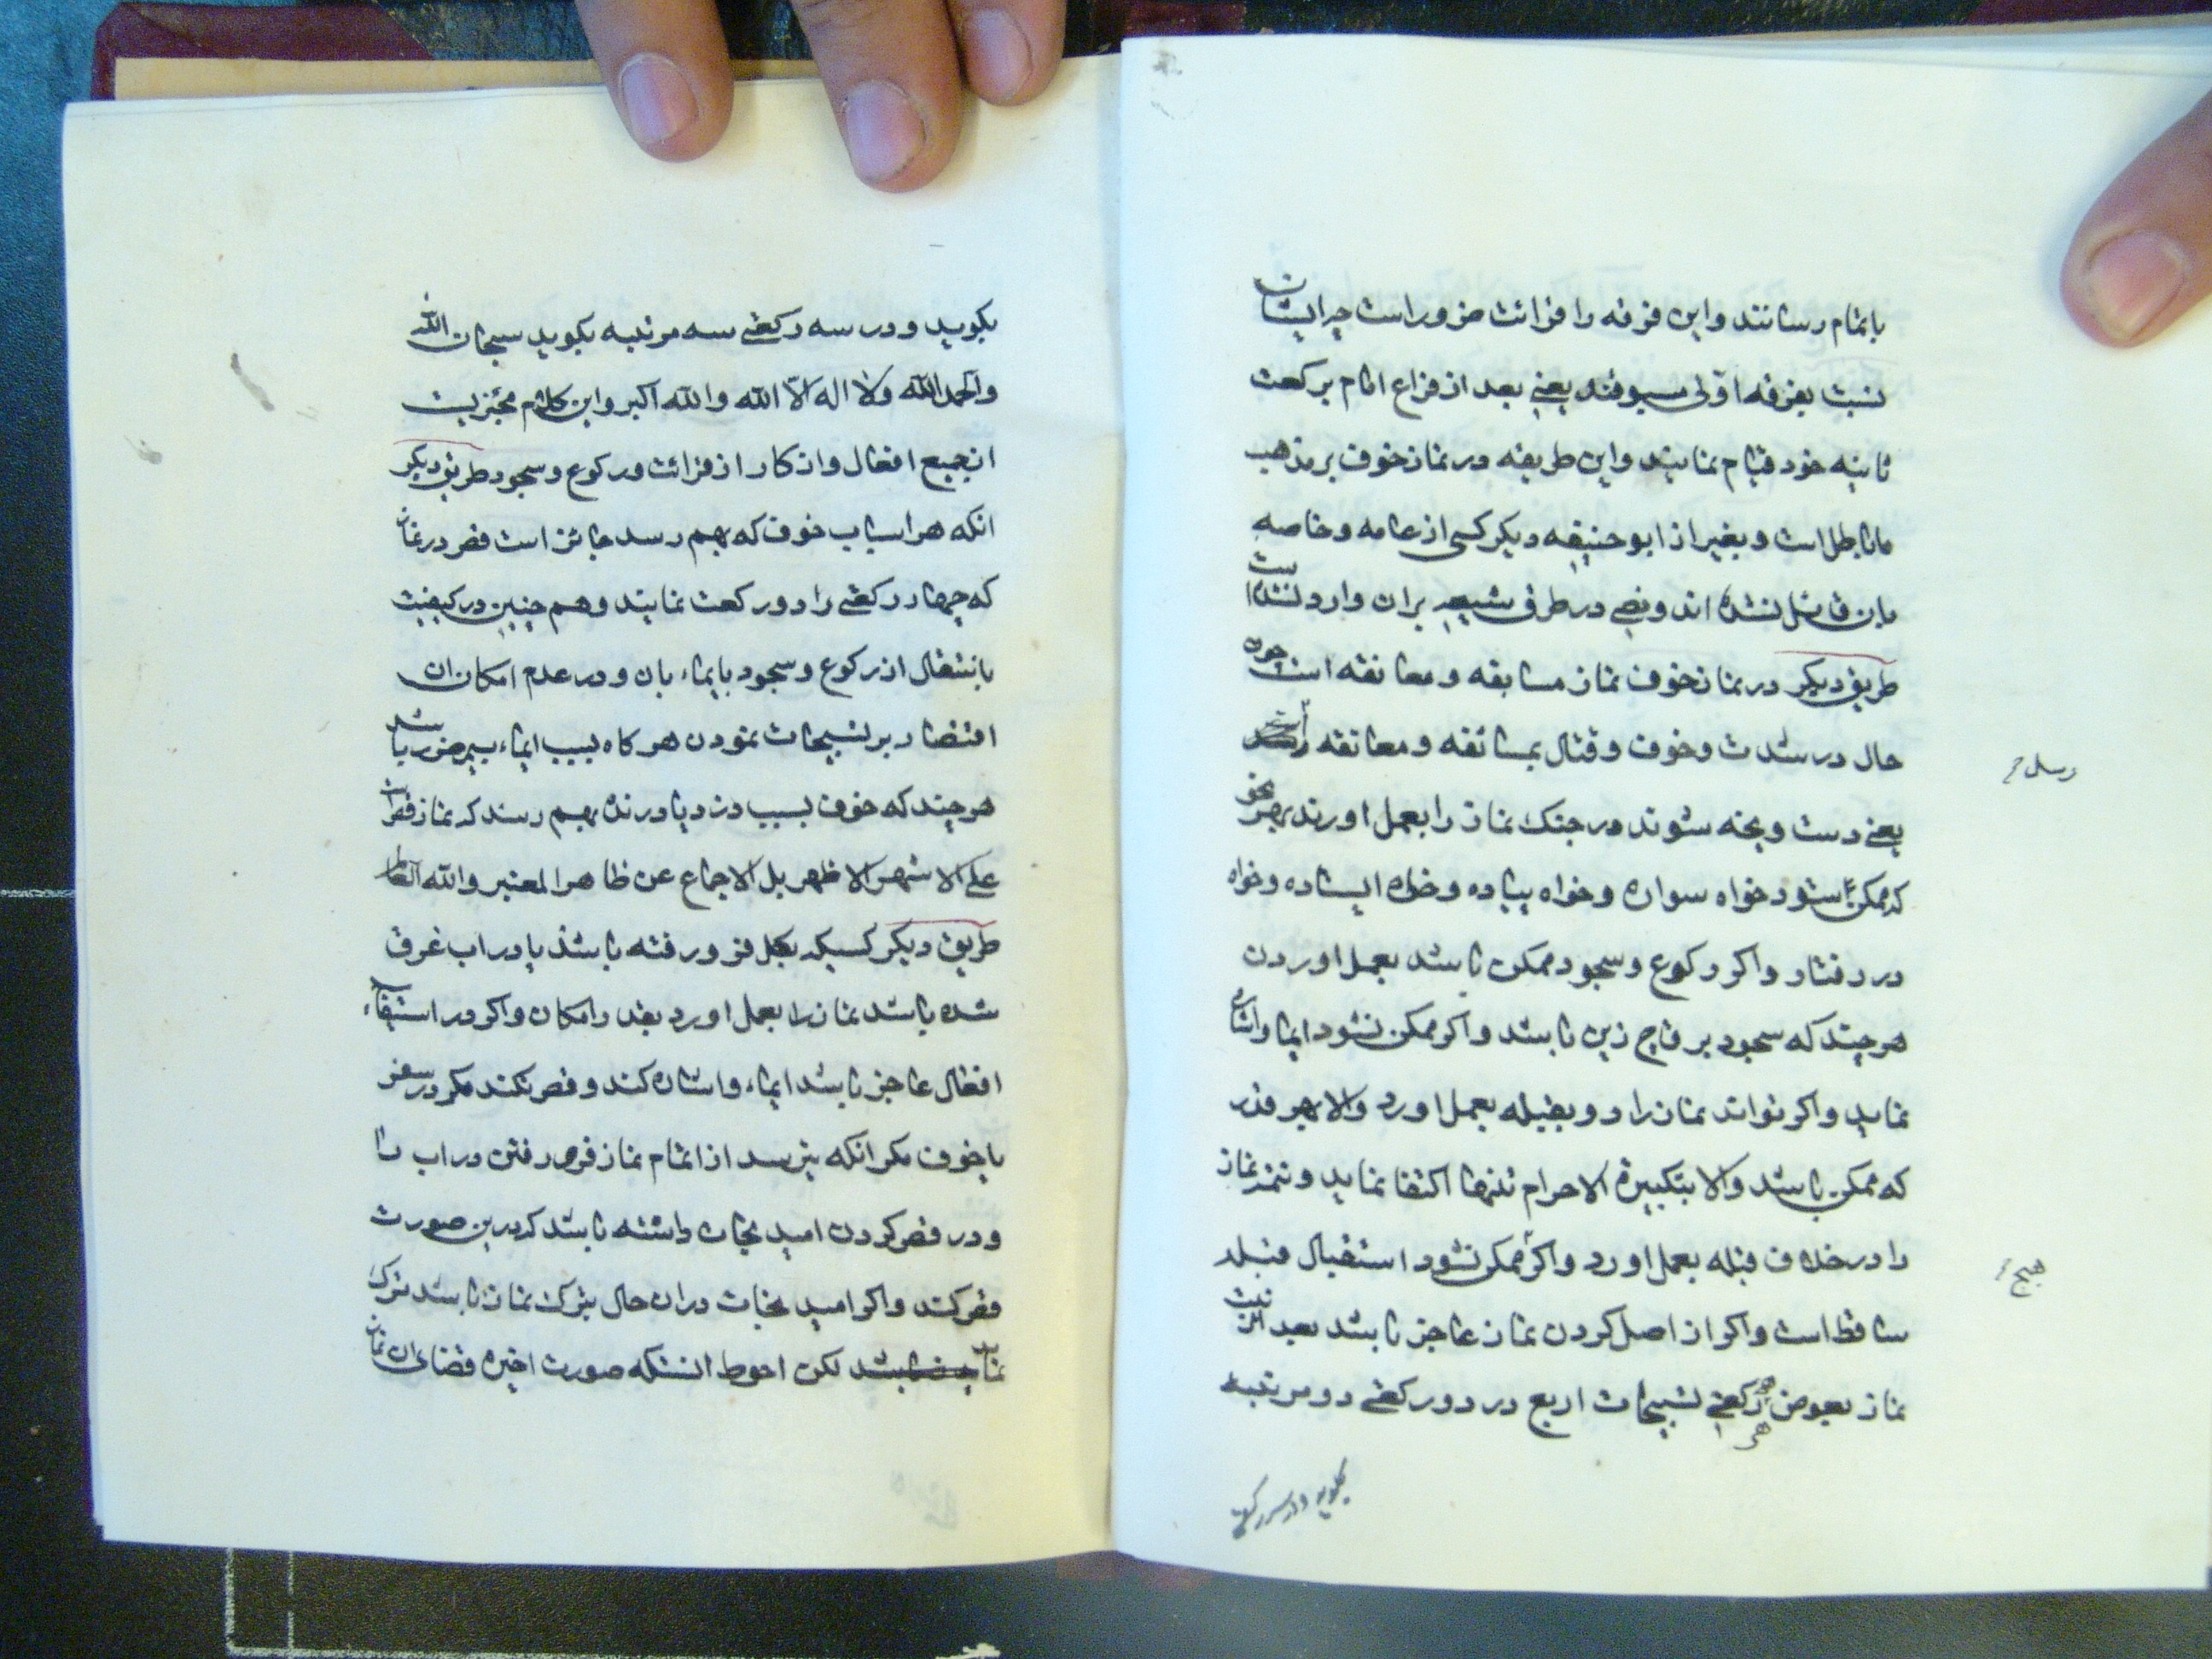 باتمام رسانند واین فرقه را قرائت ضرور است چه ایشان
نسبت بفرقه اولی مسبوقند یعنی بعد از فراغ امام برکعت
ثانیه خود قیام نمایند واین طریقه در نماز خوف بر مذهب
ما باطل است وبغیر از ابوحنیفه دیکر کسی از عامه وخاصه
بان قائل نشده اند ونصی در طرق شیعه بران وارد نشده است
طریق دیکر در نماز خوف نماز مسایفه ومعانقه است چون
حال در شدت وخوف وقتال بمسائفه ومعانقه رسد
یعنی دست ویخه شوند در جنک نماز را بعمل اورند بهر نحو
که ممکن شود خواه سواره وخواه پیاده وخواه ایستاده وخواه
در رفتار واکر رکوع وسجود ممکن باشد بعمل اوردن
هرچند که سجود بر قاچ زین باشد واکر ممکن نشود ایما واشاره
نماید واکر تواند نماز را رو بقبله بعمل اورد والا بهر قدر
که ممکن باشد والا بتکبیرة الاحرام تنها اکتفا نماید وتتمه نماز
را در خلاف قبله بعمل اورد واکر ممکن نشود استقبال قبله
ساقط است واکر از اصل کردن نماز عاجز باشد بعد از نیت
نماز بعوض هر رکعتی تسبیحات اربع در دو رکعتی دو مرتبه
رسد
هیچ
بکوید ودر سه رکعتی
بکوید ودر سه رکعتی سه مرتبه بکوید سبحان الله
والحمد لله ولا اله الا الله والله اکبر واین کلام مجزیست
از جمیع افعال واذکار از قرائت ورکوع وسجود طریق دیکر
انکه هر اسباب خوف که بهم رسد جائز است قصر در نماز
که چهار رکعتی را دو رکعت نمایند وهم چنین در کیفیت
بانتقال از رکوع وسجود بایماء بان ودر عدم امکان ان
اقتصار بر تسبیحات نمودن هر کاه بسبب ایماء نیز ضرر باشد
هرچند که خوف بسبب دزد یا درنده بهم رسد که نماز قصر است
علی الاشهر الاظهر بل الاجماع عن ظاهر المعتبر والله العالم
طریق دیکر کسیکه بکل فرو رفته باشد یا در اب غرق
شده باشد نماز را بعمل اورد بقدر امکان واکر در استیفاء
افعال عاجز باشد ایماء واشاره کند وقصر نکند مکر در سفر
یا خوف مکر انکه بترسد از اتمام نماز فرو رفتن در اب را
ودر قصر کردن امید نجات داشته باشد که درین صورت
قصر کند واکر امید نجات دران حال بترک نماز باشد ترک
نماید لکن احوط انستکه صورت اخیره قضای ان نماز